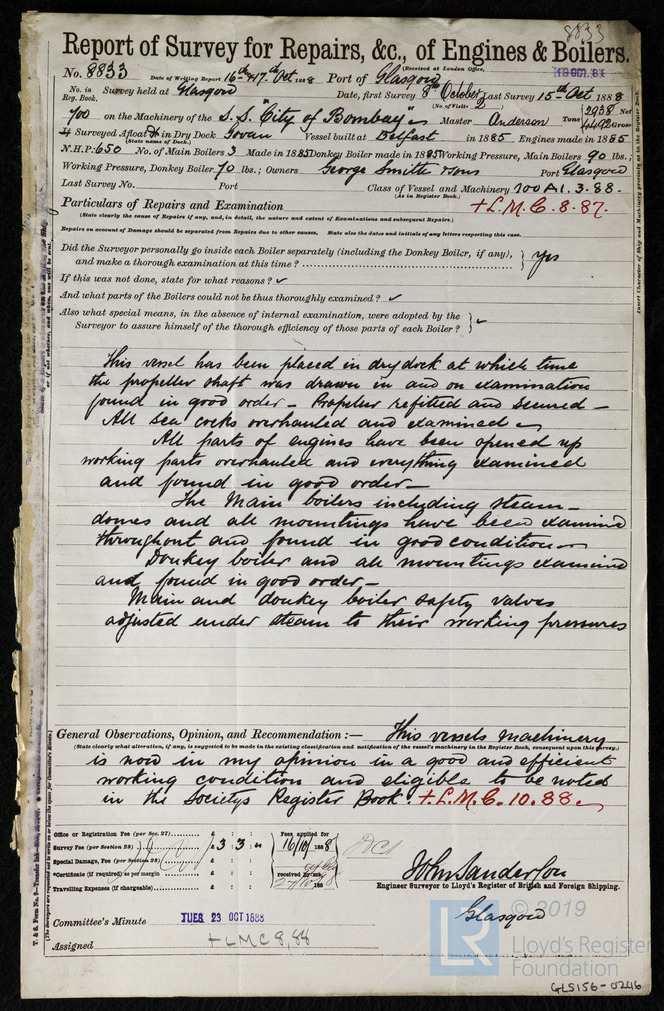 8833
Report of Survey for Repairs, &c., of Engines & Boilers.
(Received at London Office,
No. 8833 Date of Writing Report 16th & 17th Oct 1888 Port of Glasgow
No. in Reg. Book. Survey held at Glasgow Date, first Survey 8th October Last Survey 15th Oct 1888
(No. of Visits
700 on the Machinery of the S.S. "City of Bombay" Master Anderson Tons 2958 Net 4492 Gross
Surveyed Afloat or in Dry Dock Govan Vessel built at Belfast in 1885 Engines made in 1885
(State name of Dock.)
N.H.P. 650 No. of Main Boilers 3 Made in 1885 Donkey Boiler made in 1885 Working Pressure, Main Boilers 90 lbs.;
Working Pressure, Donkey Boiler 70 lbs.; Owners George Smith & Sons Port Glasgow
Last Survey No. Port Class of Vessel and Machinery 100A1.3.88.
(As in Register Book.)
Particulars of Repairs and Examination + L.M.C. 8.87.
(State clearly the cause of Repairs if any, and, in detail, the nature and extent of Examinations and subsequent Repairs.)
Repairs on account of Damage should be separated from Repairs due to other causes. State also the dates and initials of any letters respecting this case.
Did the Surveyor personally go inside each Boiler separately (including the Donkey Boiler, if any),
and make a thorough examination at this time? Yes
If this was not done, state for what reasons? ✓
And what parts of the Boilers could not be thus thoroughly examined? ✓
Also what special means, in the absence of internal examination, were adopted by the
Surveyor to assure himself of the thorough efficiency of those parts of each Boiler? ✓
This vessel has been placed in dry dock at which time
the propeller shaft was drawn in and on examination
found in good order - Propeller refitted and secured -
All sea cocks overhauled and examined
All parts of engines have been opened up
working parts overhauled and everything examined
and found in good order -
The Main boilers including steam-
domes and all mountings have been examined
throughout and found in good condition
Donkey boiler and all mountings examined
and found in good order -
Main and donkey boiler safety valves
adjusted under steam to their working pressures
General Observations, Opinion, and Recommendation :— This vessels machinery
(State clearly what alteration, if any, is suggested to be made in the existing classification and notification of the vessel's machinery in the Register Book, consequent upon this survey.)
is now in my opinion in a good and efficient
working condition and eligible to be noted
in the Societys Register Book. + L.M.C. 10.88.
Office or Registration Fee (per Sec. 27) £ : :
Survey Fee (per Section 28) £ 3 : 3 :
Special Damage, Fee (per Section 28) £ : :
*Certificate (if required) as per margin £ : :
Travelling Expenses (if chargeable) £ : :
Fees applied for
16/10/1888
received by me,
188
John Sanderson
Engineer Surveyor to Lloyd's Register of British and Foreign Shipping.
Glasgow
Committee's Minute TUES 23 OCT 1888
Assigned + LMC 8,88
© 2019
LR
Lloyd's Register
Foundation
GLS156-0246